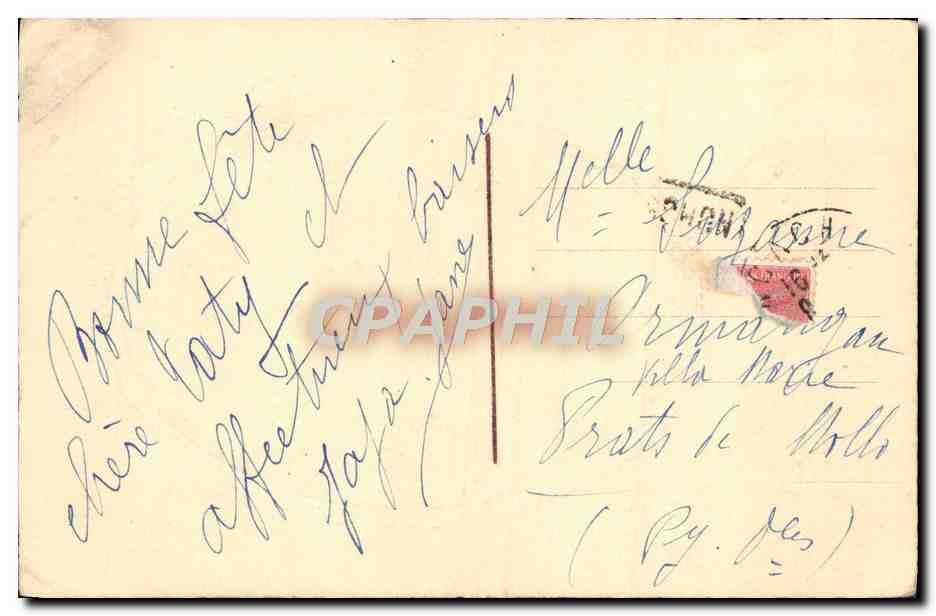 Bonne fête
chère Caty et
affectueux baisers
Jane
Melle Suzanne
Ormangau
Villa Marie
Prats de Mollo
(Py. Oles)
CPAPHIL